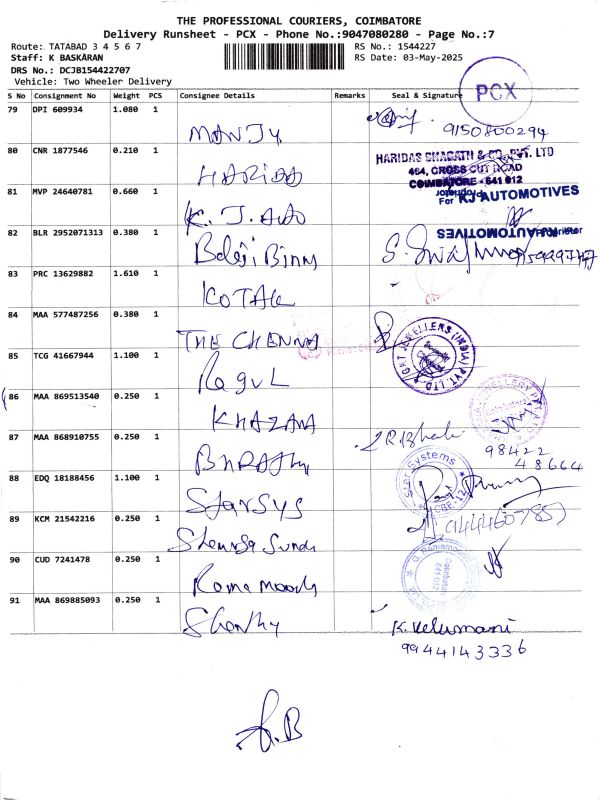 THE PROFESSIONAL COURIERS, COIMBATORE
Delivery Runsheet - PCX - Phone No.:9047080280 - Page No.:7
Route: TATABAD 3 4 5 6 7 RS No.: 1544227
Staff: K BASKARAN RS Date: 03-May-2025
DRS No.: DCJB154422707
Vehicle: Two Wheeler Delivery
PCX
S No Consignment No Weight PCS Consignee Details Remarks Seal & Signature
79 DPI 609934 1.080 1
MANJU 9150800294
80 CNR 1877546 0.210 1
HARIDAS BHAGATH & CO. PVT. LTD
464, CROSS CUT ROAD
COIMBATORE - 641 012
HARIDAS
81 MVP 24640781 0.660 1
For KJ AUTOMOTIVES
K. J. Auto
82 BLR 2952071313 0.380 1
KJ AUTOMOTIVES
Balaji Binny
83 PRC 13629882 1.610 1
KOTAK
84 MAA 577487256 0.380 1
THE CHENNA
85 TCG 41667944 1.100 1
JEWELLERS (INDIA) PVT. LTD
Ragul
86 MAA 869513540 0.250 1
KHAZANA
87 MAA 868910755 0.250 1
98422
48664
BHRATHY
88 EDQ 18188456 1.100 1
Star Systems
CBE-12
STARSYS
89 KCM 21542216 0.250 1
90 CUD 7241478 0.250 1
Rama moody
91 MAA 869885093 0.250 1
Shanthy
K. Velumani
9944143336